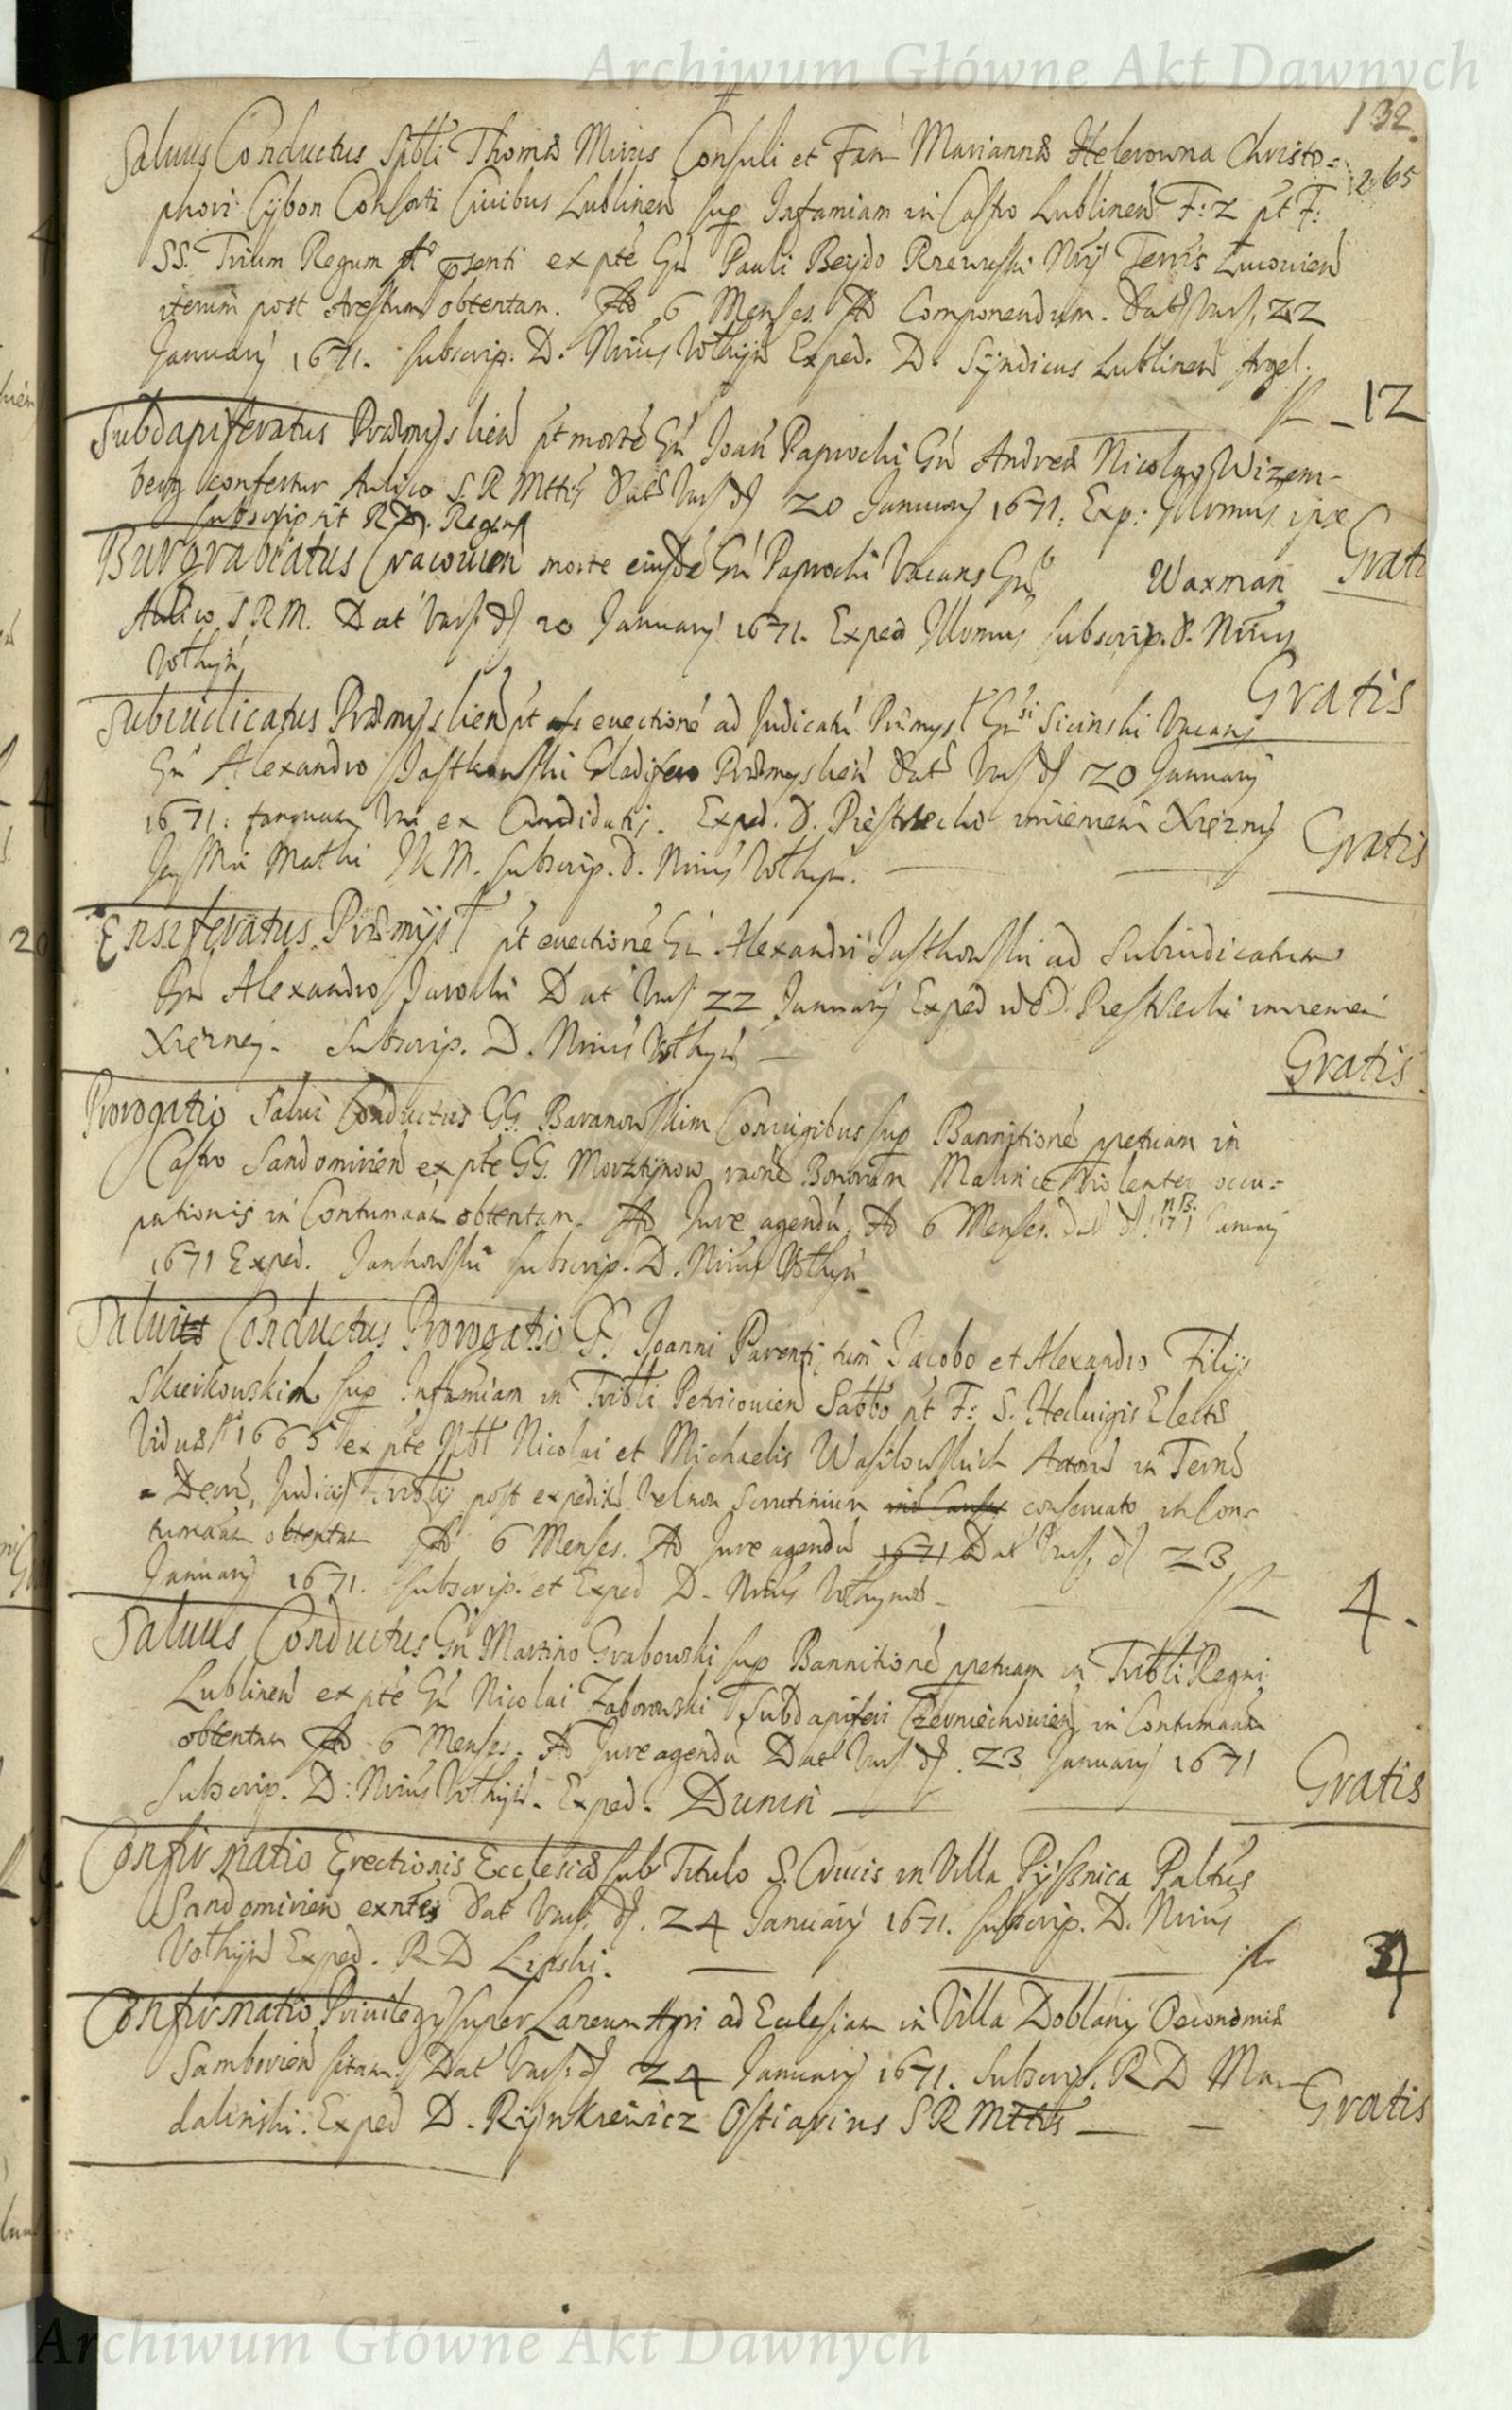 Archiwum Główne Akt Dawnych
132.
265
Saluus Conductus Spbli Thomæ Consuli et Fam Mariannæ Helerowna Christo=
phori Cybon Consorti Ciuibus Lublinen sup Infamiam in Castro Lublinen F: 2 pt F:
SS. Trium Regum Ao psenti ex pte Gn Pauli Beydo Rzewuski Nrij Terris Łucouien
iterum post Arestum obtentam. Ad 6 Menses. Ad Componendum. Dat Vars. 22
January 1671. subscrip. D. Nrius Wołhyn Exped. D. Syndicus Lublinen
12
Subdapiferatus Præmyslien pt morte Gn Joan Paprocki Gn Andreæ Nicolao Wizem-
berg confertur Aulico S. R Mttis Dat Vars d 20 January 1671. Exp: Illmus ipse
subscripsit R D. Regens
Grati
Burgrabiatus Cracouien morte eiusde Gn Paprocki Vacans Gn Waxman
Aulico S R M. Dat Vars d 20 January 1671. Exped Illmus subscrip. D. Nrius
Wołhyn
Gratis
Subiudicatus Præmyslien pt euectione ad Judicatu Præmysl Gn Sicinski Vacans
Gn Alexandro Jastkowski Gladifero Præmyslien Dat Vars d 20 January
1671. tanquam Vni ex Candidatis. Exped. D. Piestrzecki imieniem Xiężny
Jey Mci Matki JKM. subscrip. D. Nrius Wołhyn.
Gratis
Ensiferatus Præmysl pt euectione Gn Alexandri Jastkowski ad Subiudicatum
Gn Alexandro Jarocki Dat Vars 22 January Exped D. Piestrzecki imieniem
Xiężney. Subscrip. D. Nrius Wołhyn
Gratis
Prorogatio Salui Conductus GG. Baranowskim Coniugibus sup Bannitione ppetuam in
Castro Sandomirien ex pte GG. Morztynow raone Bonorum Malinie Violenter occu=
pationis in Contumaciam obtentam. Ad Jure agendu. Ad 6 Menses. Dat d. 17 January
NB.
1671 Exped. Jankowski subscrip. D. Nrius Wołhyn
Salui Conductus Prorogatio G. Joanni Parenti, tum Jacobo et Alexandro Filijs
Skieikowskim sup Infamiam in Tribli Petricouien Sabbo pt F: S. Hedwigis Electæ
Viduæ Ao 1665 ex pte Nicolai et Michaelis Wasilowskich in
post expeditu Velnon Scrutinium conseruato in Con-
tumaciam obtentam Ad 6 Menses. Ad Jure agendu 1671 Dat Vars, d 23
January 1671. subscrip. et Exped D. Nrius Wołhynien
4.
Saluus Conductus Gn Martino Grabowski sup Bannitione ppetuam in Tribli Regni
Lublinen ex pte Gn Nicolai Zaborowski Subdapiferi Czerniechouien in Contumaciam
obtentam Ad 6 Menses. Ad Jure agendu Dat Vars d. 23 January 1671
Subscrip. D: Nrius Wołhyn. Exped. Dunin
Gratis
Confirmatio Erectionis Ecclesiæ sub Titulo S. Crucis in Villa Pysznica Paltus
Sandomirien exntis Dat Vars. d. 24 January 1671. subscrip. D. Nrius
Wołhyn Exped. R D Lipski.
Confirmatio Priuilegij super Laneum Agri ad Ecclesiam in Villa Doblany Oeconomiæ
Samborien sitam. Dat Vars. d 24 January 1671. Subscrip. R D Ma-
dalinski. Exped D. Rynkiewicz Ostiarius S R Mttis
Gratis
Archiwum Główne Akt Dawnych